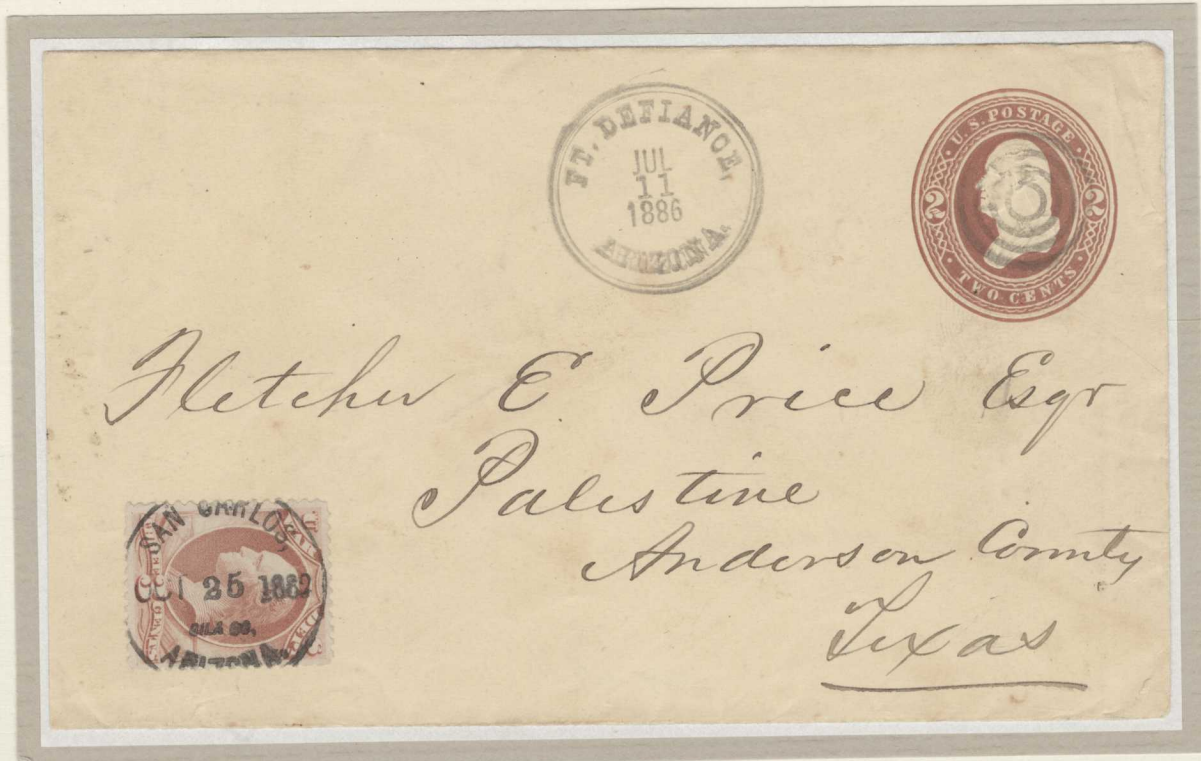 FT. DEFIANCE,
JUL
11
1886
ARIZONA.
U.S. POSTAGE
2 2
TWO CENTS
Fletcher E Price Esqr
Palestine
Anderson County
Texas
SAN CARLOS,
OCT 25 1882
GILA CO,
ARIZONA.